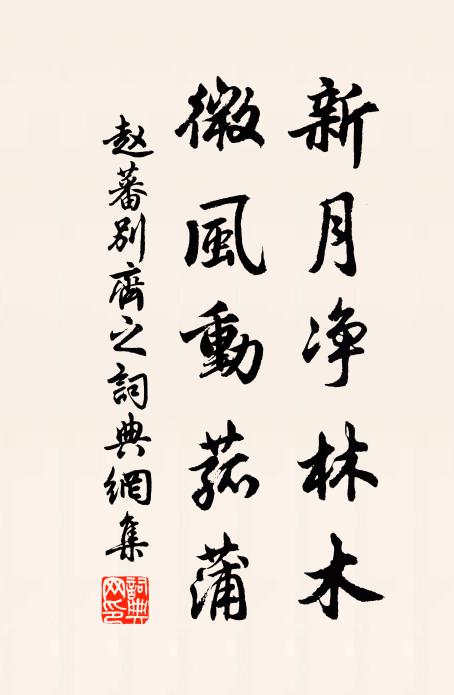 新月净林木
微風動菰蒲
赵蕃别齊之詞典網集
詞典網印